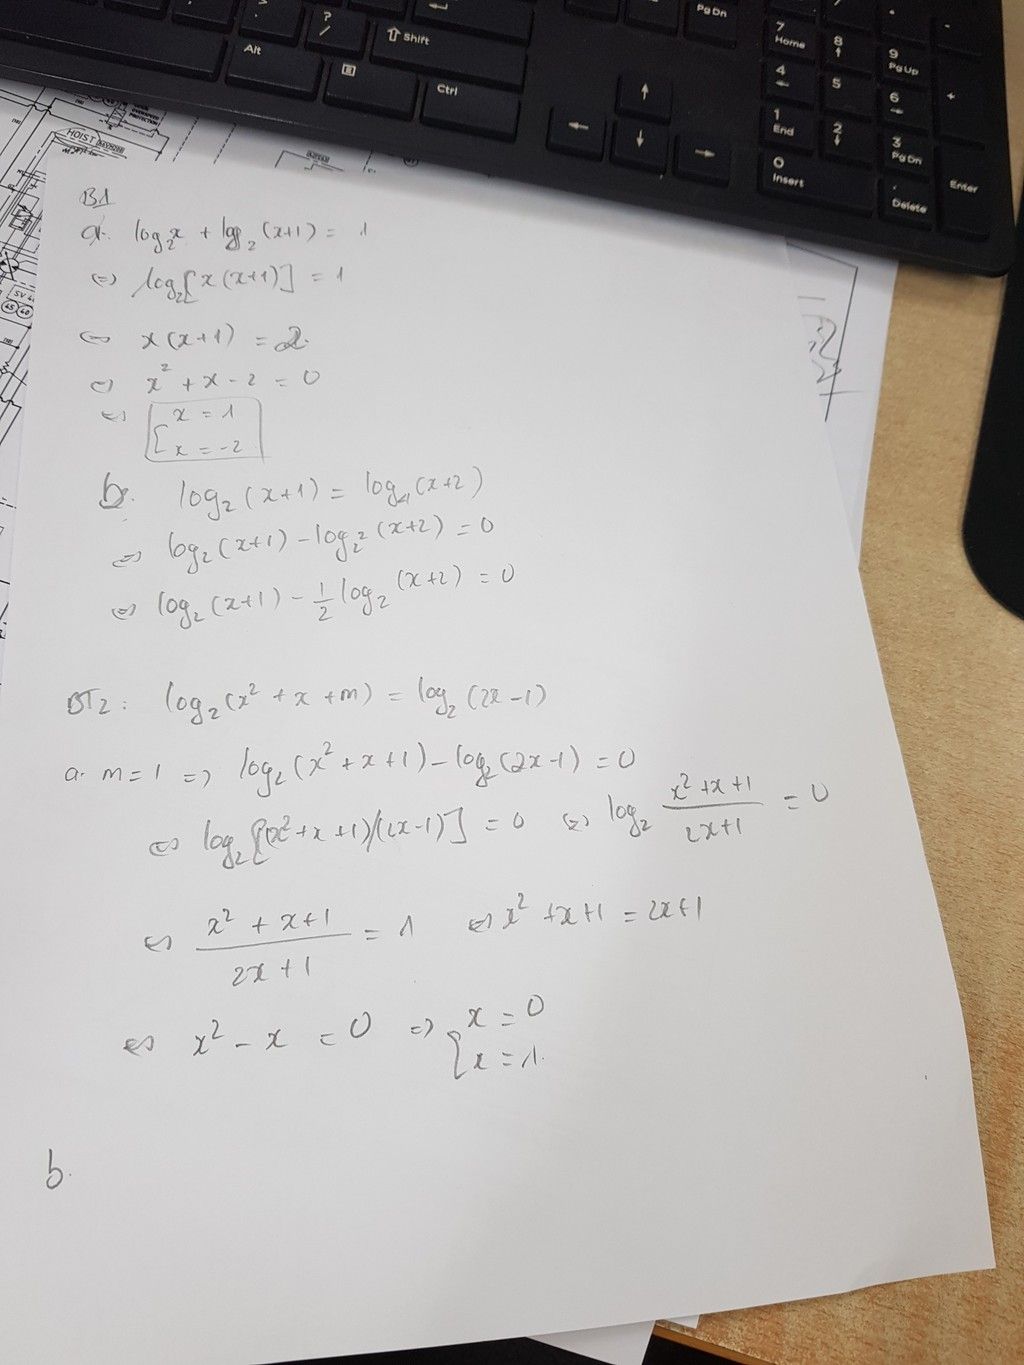 ? /
Alt
⇧ Shift
Ctrl
Pg Dn
7 Home
8 ↑
9 Pg Up
4 ←
5
6 →
+
1 End
2 ↓
3 Pg Dn
0 Insert
. Delete
Enter
↑
← ↓ →
HOIST
B1
a. log₂x + log₂(x+1) = 1
⇔ log₂[x(x+1)] = 1
⇔ x(x+1) = 2.
⇔ x² + x - 2 = 0
⇔ [x = 1
x = -2
b. log₂(x+1) = log₄(x+2)
⇔ log₂(x+1) - log₂²(x+2) = 0
⇔ log₂(x+1) - 1/2 log₂(x+2) = 0
BT2: log₂(x² + x + m) = log₂(2x - 1)
a. m = 1 => log₂(x² + x + 1) - log₂(2x - 1) = 0
⇔ log₂[(x² + x + 1)/(2x-1)] = 0 ⇔ log₂ (x² + x + 1)/(2x+1) = 0
⇔ (x² + x + 1)/(2x + 1) = 1 ⇔ x² + x + 1 = 2x + 1
⇔ x² - x = 0 => [x = 0
x = 1.
b.